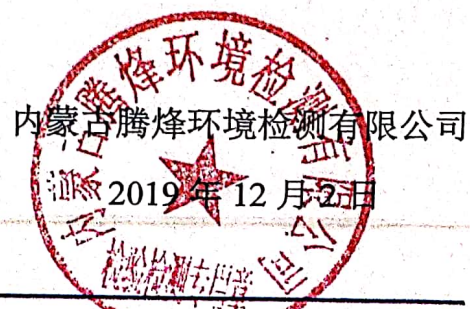 内蒙古腾烽环境检测有限公司
2019 年 12 月 2 日
内蒙古腾烽环境检测有限公司